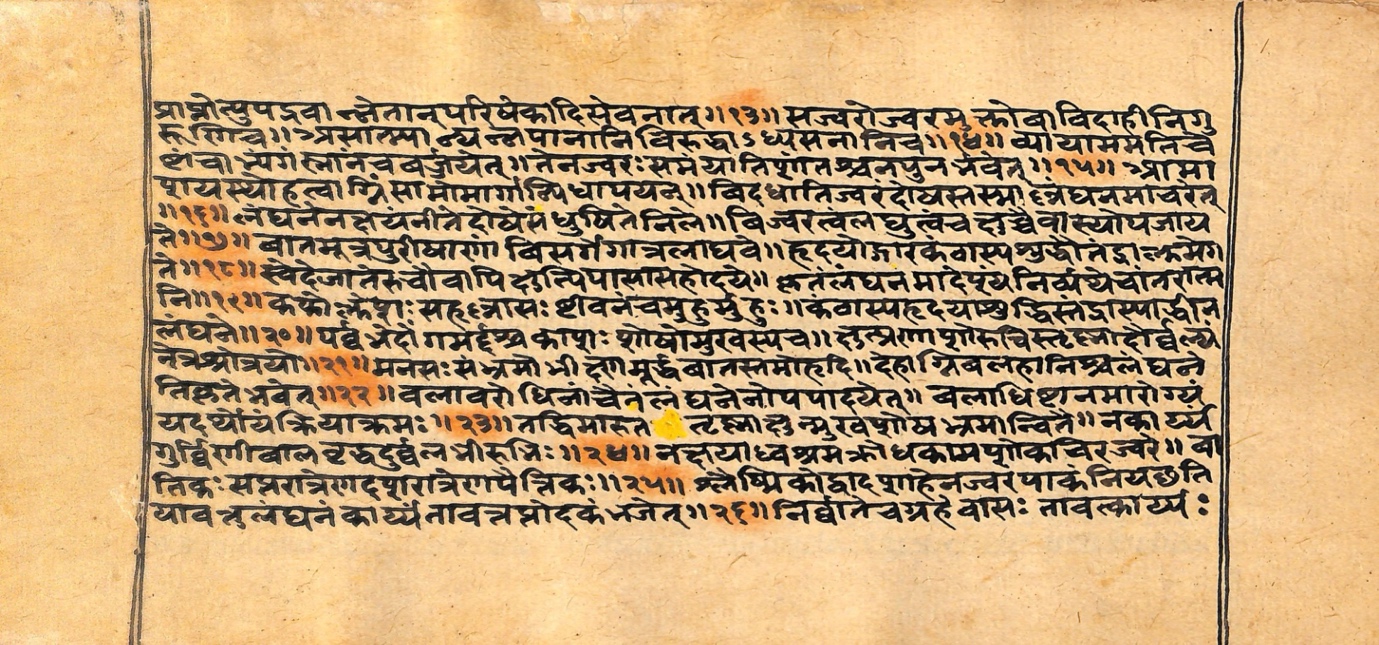 प्राप्नोत्पुपद्रवा न्नेतान्परिषेकादिसेवनात्॥१३॥ सज्वरोज्वरमुक्तोवा विदाहीनिगु
रूणिच॥ असात्म्या न्यन्नपानानि विरुद्धाऽध्यसनानिच॥१४॥ व्यायाममतिचे
ष्टांचा भ्यगंस्नानंचवर्ज्जयेत्॥ तेनज्वरःसमंयातिशांतश्चनपुनर्भवेत्॥१५॥ आमा
शयस्थोहत्वाग्निंसामोमार्गान्पिधापयन्॥ विदधातिज्वरंदोषस्तस्माल्लंघनमाचरेत्
॥१६॥ लंघनेनक्षयंनीतेदोषेसंधुषितेनिले॥ विज्वरत्वंलघुत्वंच क्षुच्चैवास्योपजाय
ते॥१७॥ वातमूत्रपुरीषाणां विसर्गेगात्रलाघवे॥ हृदयोद्गारकंठास्यशुद्धौतंद्राक्लमेग
ते॥१८॥ स्वेदेजातेरुचौवापि क्षुत्पिपासासहोदये॥ कृतंलंघनमादेश्यं निर्व्यथेचांतरात्म
नि॥१९॥ कफोत्क्लेशः सहृल्लासः ष्ठीवनंचमुहुर्मुहुः॥ कंठास्यहृदयाशुद्धिस्तंद्रास्याद्धीन
लंघने॥२०॥ पर्व्वभेदोंगमर्द्दश्च कासः शोषोमुखस्यच॥ क्षुत्प्रणाशोरुचिस्तृष्णादौर्व्वल्यं
नेत्रश्रोत्रयोः॥२१॥ मनसःसंभ्रमोभीक्ष्णमूर्द्धवातस्तमोहृदि॥ देहाग्निवलहानिश्चलंघने
तिकृतेभवेत्॥२२॥ वलावरोधिनांचैतंलंघनेनोपपादयेत्॥ वलाधिष्टानमारोग्यं
यदर्थोयंक्रियाक्रमः॥२३॥ तद्धिमारुत तृष्णाक्षुन्मुखशोषभ्रमान्विते॥ नकार्य्यं
गुर्व्विणीवालवृद्धदुर्व्वलभीरुभिः॥२४॥ नक्षयाध्वश्रमक्रोधकामशोकचिरज्वरे॥ वा
तिकः सप्तरात्रेणदशरात्रेणपैत्तिकः॥२५॥ श्लैष्मिकोद्वादशाहेनज्वरपाकंनियछति
यावत्तुलंघनंकार्य्यंतावत्तप्तोदकंभजेत्॥२६॥ निर्व्वातेचगृहेवासः तावत्कार्य्यं: